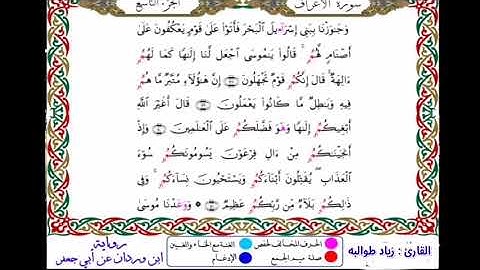 سورة الأعراف الجزء التاسع
وَجَٰوَزْنَا بِبَنِىٓ إِسْرَٰٓءِيلَ ٱلْبَحْرَ فَأَتَوْا۟ عَلَىٰ قَوْمٍ يَعْكُفُونَ عَلَىٰٓ
أَصْنَامٍ لَّهُمُۥ ۚ قَالُوا۟ يَٰمُوسَى ٱجْعَل لَّنَآ إِلَٰهًا كَمَا لَهُمُۥٓ
ءَالِهَةٌ ۚ قَالَ إِنَّكُمُۥ قَوْمٌ تَجْهَلُونَ إِنَّ هَٰٓؤُلَآءِ مُتَبَّرٌ مَّا هُمُۥ
فِيهِ وَبَٰطِلٌ مَّا كَانُوا۟ يَعْمَلُونَ قَالَ أَغَيْرَ ٱللَّهِ
أَبْغِيكُمُۥٓ إِلَٰهًا وَهْوَ فَضَّلَكُمُۥ عَلَى ٱلْعَٰلَمِينَ وَإِذْ
أَنجَيْنَٰكُمُۥ مِنْ ءَالِ فِرْعَوْنَ يَسُومُونَكُمُۥ سُوٓءَ
ٱلْعَذَابِ يُقَتِّلُونَ أَبْنَآءَكُمُۥ وَيَسْتَحْيُونَ نِسَآءَكُمُۥ ۚ وَفِى
ذَٰلِكُمُۥ بَلَآءٌ مِّن رَّبِّكُمُۥ عَظِيمٌ وَوَعَدْنَا مُوسَىٰ
القارئ : زياد طوالبه
الحرف المخالف لحفص
صلة ميم الجمع
الغنة مع الخاء والغين
الإدغام
رواية
ابن وردان عن أبي جعفر